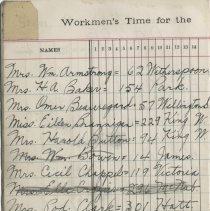 Workmen's Time for the
NAMES 1 2 3 4 5 6 7 8 9 10 11 12 13 14
Mrs. Wm Armstrong = 62 Witherspoon
Mrs. H A Baker = 154 Park.
Mrs. Omer Beauregard = 57 Wellington
Miss Eileen Brannigan = 229 King W
Mrs. Harold Button = 94 King W
Mrs. Wm Bowen = 14 James.
Mrs. Cecil Chapple = 119 Victoria
Mrs.
Mrs. Rod Clark = 301 Hatt